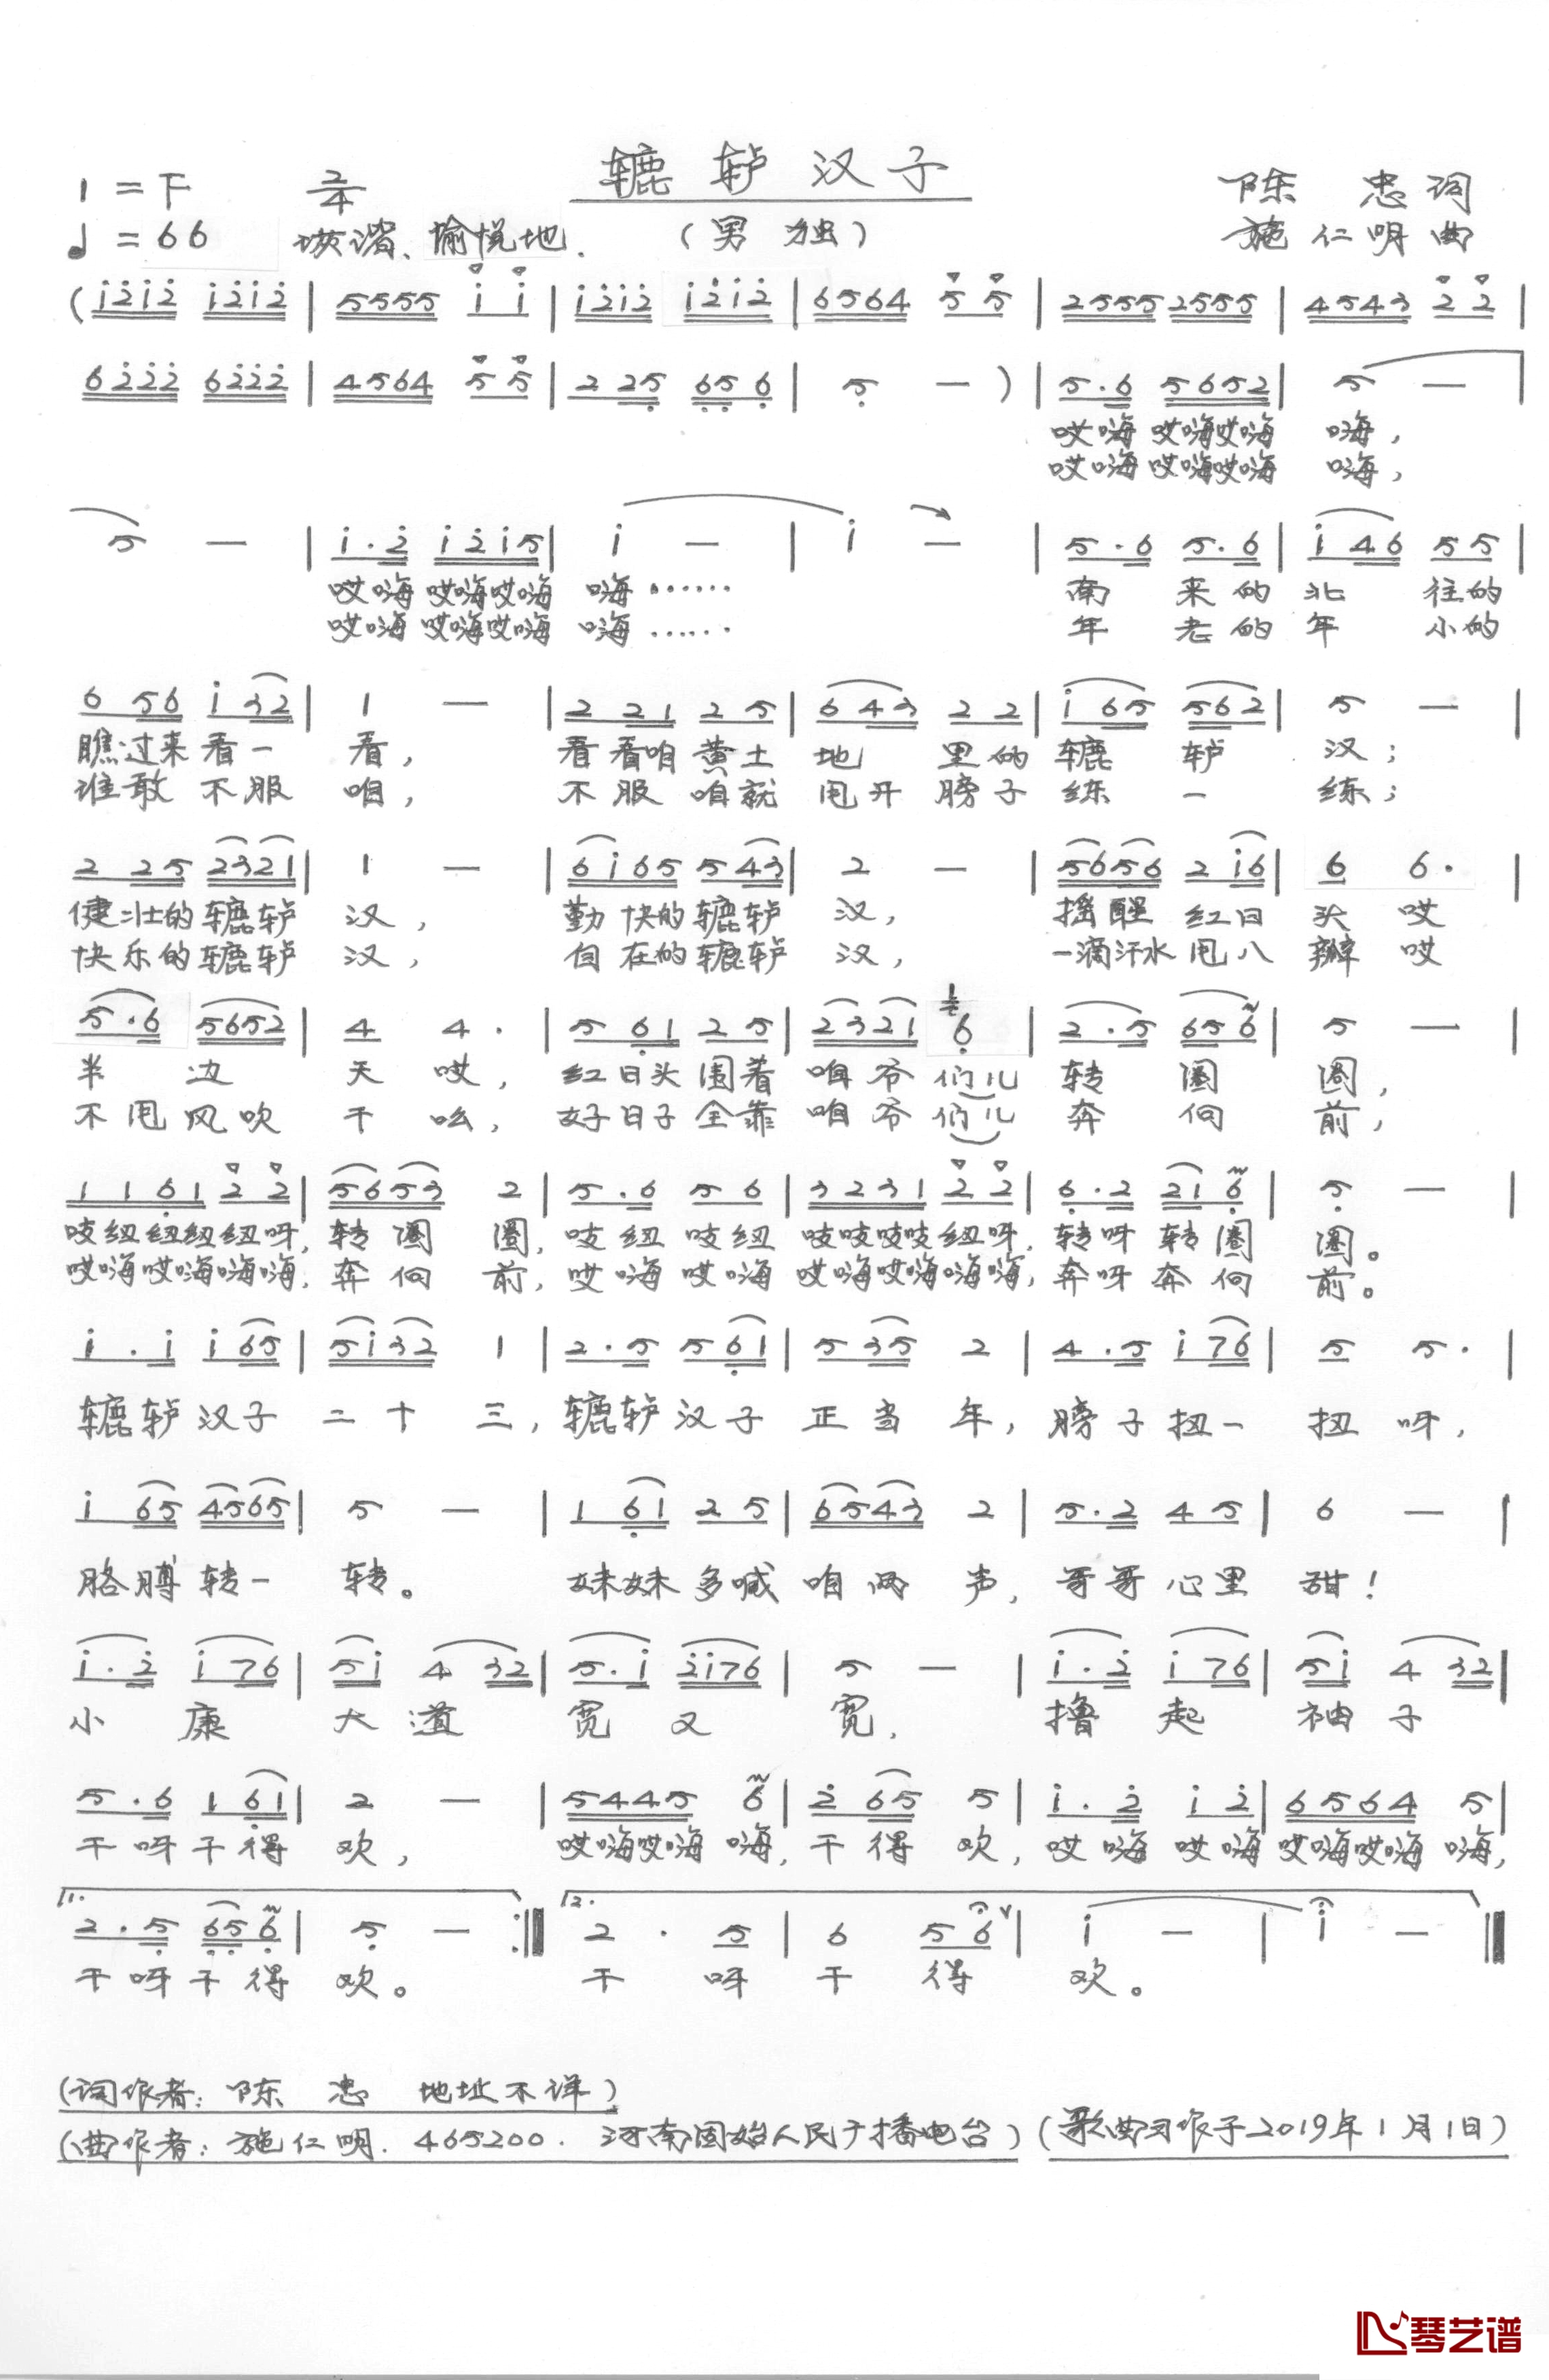 1=F 2/4 辘轳汉子 陈忠词
♩=66 诙谐、愉悦地. (男独) 施仁明曲
(i̇2̇i̇2̇ i̇2̇i̇2̇ | 5555 i̇ i̇ | i̇2̇i̇2̇ i̇2̇i̇2̇ | 6564 5 5 | 2555 2555 | 4543 2 2 |
62̇2̇2̇ 62̇2̇2̇ | 4564 5 5 | 2 25̣ 6̣5̣ 6̣ | 5̣ — ) | 5·6 5652 | 5 — |
哎嗨 哎嗨哎嗨 嗨,
哎嗨 哎嗨哎嗨 嗨,
5 — | i̇·2̇ i̇2̇i̇5 | i̇ — | i̇ — | 5·6 5·6 | i̇ 46 55 |
哎嗨 哎嗨哎嗨 嗨…… 南 来的 北 往的
哎嗨 哎嗨哎嗨 嗨…… 年 老的 年 小的
6 56 i̇ 32 | 1 — | 2 21 2 5 | 6 43 2 2 | i̇ 65 562 | 5 — |
瞧过来看一 看, 看看咱黄土 地 里的 辘 轳 汉;
谁敢 不服 咱, 不服 咱就 甩开 膀子 练 一 练;
2 25 2321 | 1 — | 6i̇65 5 43 | 2 — | 5656 2 i̇6 | 6 6· |
健壮的辘轳 汉, 勤快的辘轳 汉, 摇醒 红日 头 哎
快乐的辘轳 汉, 自在的辘轳 汉, 一滴汗水 甩八 瓣 哎
5·6 5652 | 4 4· | 5 6̣1 2 5 | 2321 6̣ | 2·5 656 | 5 — |
半 边 天 哎, 红日头围着 咱爷们儿 转 圈 圈,
不甩风吹 干 吆, 好日子全靠 咱爷们儿 奔 向 前,
116̣1 2 2 | 5653 2 | 5·6 5 6 | 3231 2 2 | 6̣·2 21 6̣ | 5̣ — |
吱纽纽纽纽呀, 转圈 圈, 吱纽 吱纽 吱吱吱吱纽呀, 转呀转圈 圈。
哎嗨哎嗨嗨嗨, 奔向 前, 哎嗨 哎嗨 哎嗨哎嗨嗨嗨, 奔呀奔向 前。
i̇·i̇ i̇ 65 | 5i̇32 1 | 2·5 5 6̣1 | 5 35 2 | 4·5 i̇ 76 | 5 5· |
辘轳汉子 二十 三, 辘轳汉子 正当 年, 膀子扭一 扭呀,
i̇ 65 4565 | 5 — | 1 6̣1 2 5 | 6543 2 | 5·2 4 5 | 6 — |
胳膊转一 转。 妹妹多喊 咱两 声, 哥哥心里 甜!
i̇·2̇ i̇ 76 | 5i̇ 4 32 | 5·i̇ 2̇i̇76 | 5 — | i̇·2̇ i̇ 76 | 5i̇ 4 32 |
小 康 大 道 宽 又 宽, 撸 起 袖 子
5·6 1 6̣1 | 2 — | 5445 6 | 2̇ 65 5 | i̇·2̇ i̇ 2̇ | 6564 5 |
干呀干得 欢, 哎嗨哎嗨 嗨, 干得 欢, 哎嗨 哎嗨 哎嗨哎嗨 嗨,
1. 2·5̣ 6̣5̣ 6̣ | 5̣ — :‖ 2. 2· 5 | 6 5 6 | i̇ — | i̇ — ‖
干呀干得 欢。 干 呀 干 得 欢。
(词作者: 陈忠 地址不详)
(曲作者: 施仁明. 465200. 河南固始人民广播电台) (歌曲习作于2019年1月1日)
琴艺谱